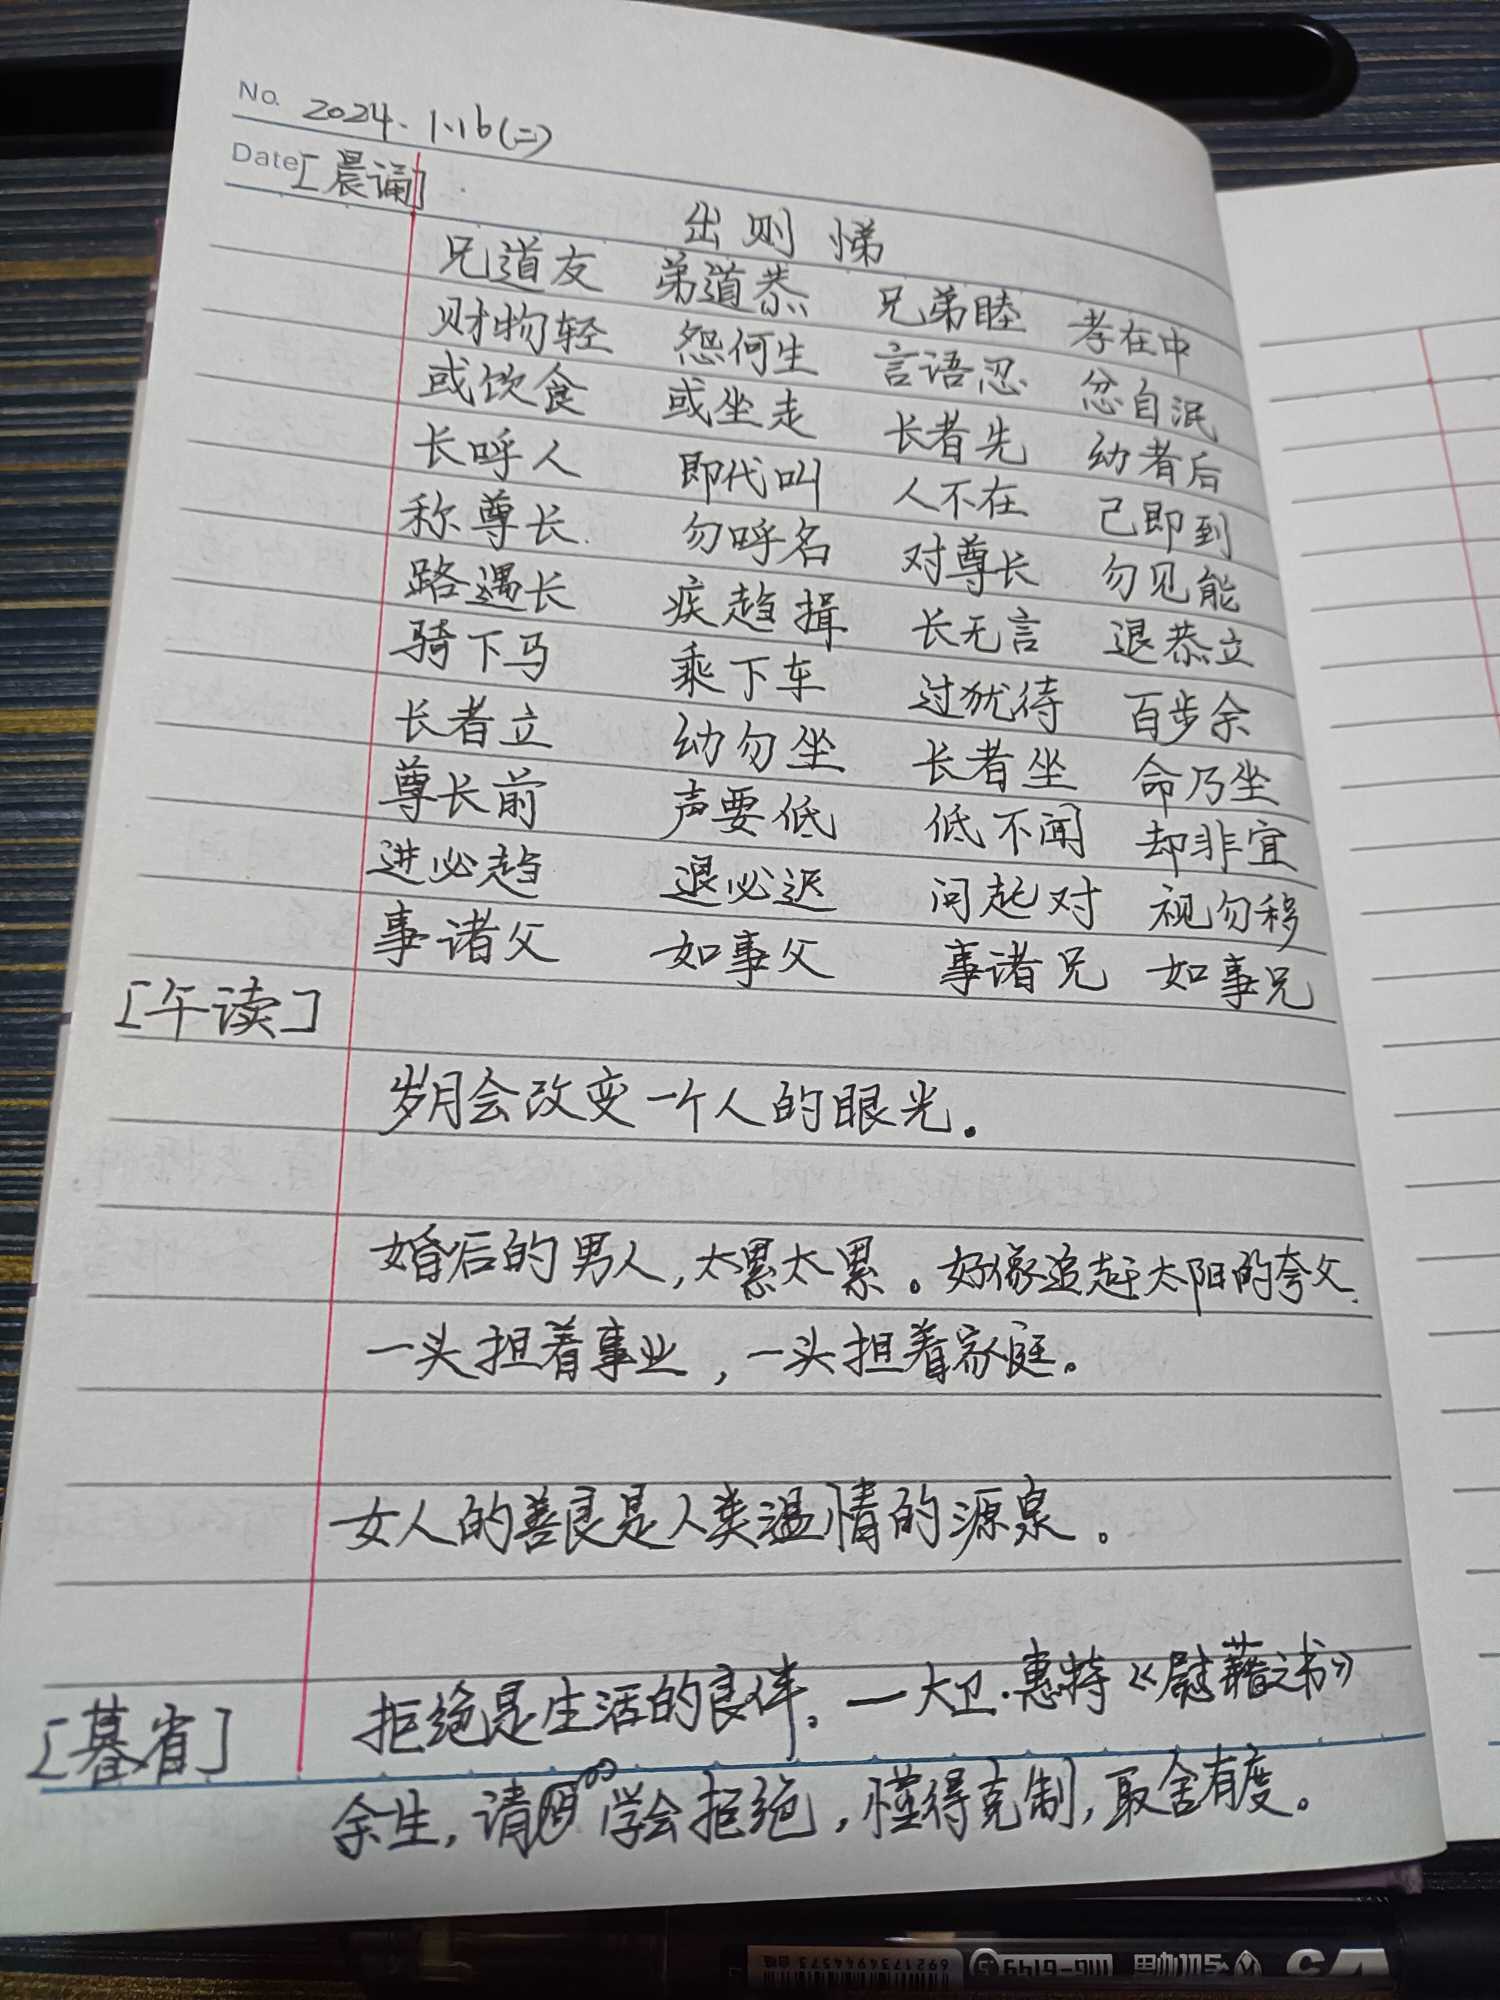 No. 2024.1.16(二)
Date [晨诵]
出则悌
兄道友 弟道恭 兄弟睦 孝在中
财物轻 怨何生 言语忍 忿自泯
或饮食 或坐走 长者先 幼者后
长呼人 即代叫 人不在 己即到
称尊长 勿呼名 对尊长 勿见能
路遇长 疾趋揖 长无言 退恭立
骑下马 乘下车 过犹待 百步余
长者立 幼勿坐 长者坐 命乃坐
尊长前 声要低 低不闻 却非宜
进必趋 退必迟 问起对 视勿移
事诸父 如事父 事诸兄 如事兄
[午读]
岁月会改变一个人的眼光。
婚后的男人,太累太累。好像追赶太阳的夸父.
一头担着事业,一头担着家庭。
女人的善良是人类温情的源泉。
[暮省] 拒绝是生活的良伴。——大卫·惠特《慰藉之书》
余生,请学会拒绝,懂得克制,取舍有度。
6921734944573
MG-6149